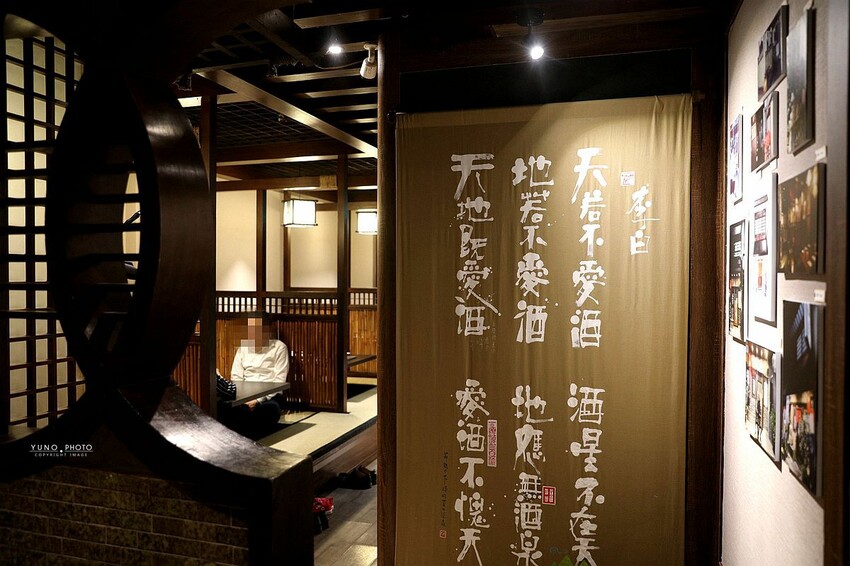 李白
天若不愛酒 酒星不在天
地若不愛酒 地應無酒泉
天地既愛酒 愛酒不愧天
YUNO PHOTO
COPYRIGHT IMAGE